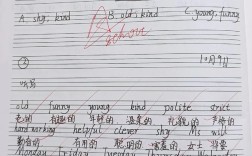 A. shy, kind B. old, kind C. young, funny
②
10月9日
听写
old funny young kind polite strict
老的 有趣的 年轻的 温柔的 礼貌的 严格的
hard-working helpful clever shy Ms will
勤奋的 有用的 聪明的 害羞的 女士 将要
Monday Friday Tuesday Thursday